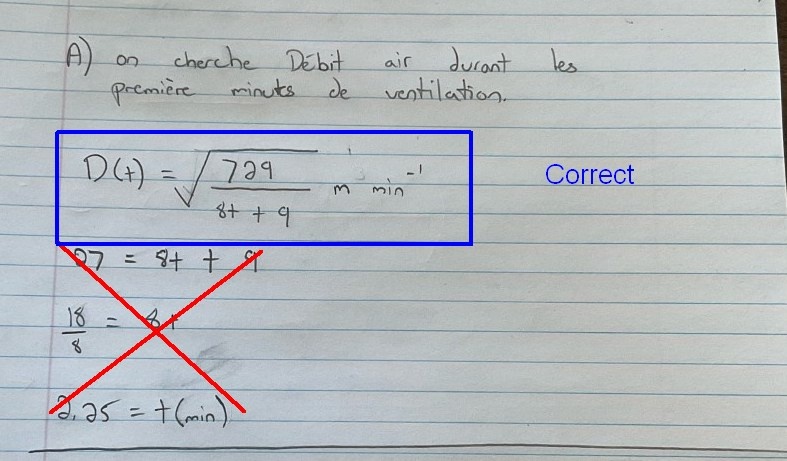 A) on cherche Débit air durant les
première minuts de ventilation.
D(t) = √(729/(8t + 9)) m min⁻¹
Correct
27 = 8t + 9
18/8 = 8t
2,25 = t (min)